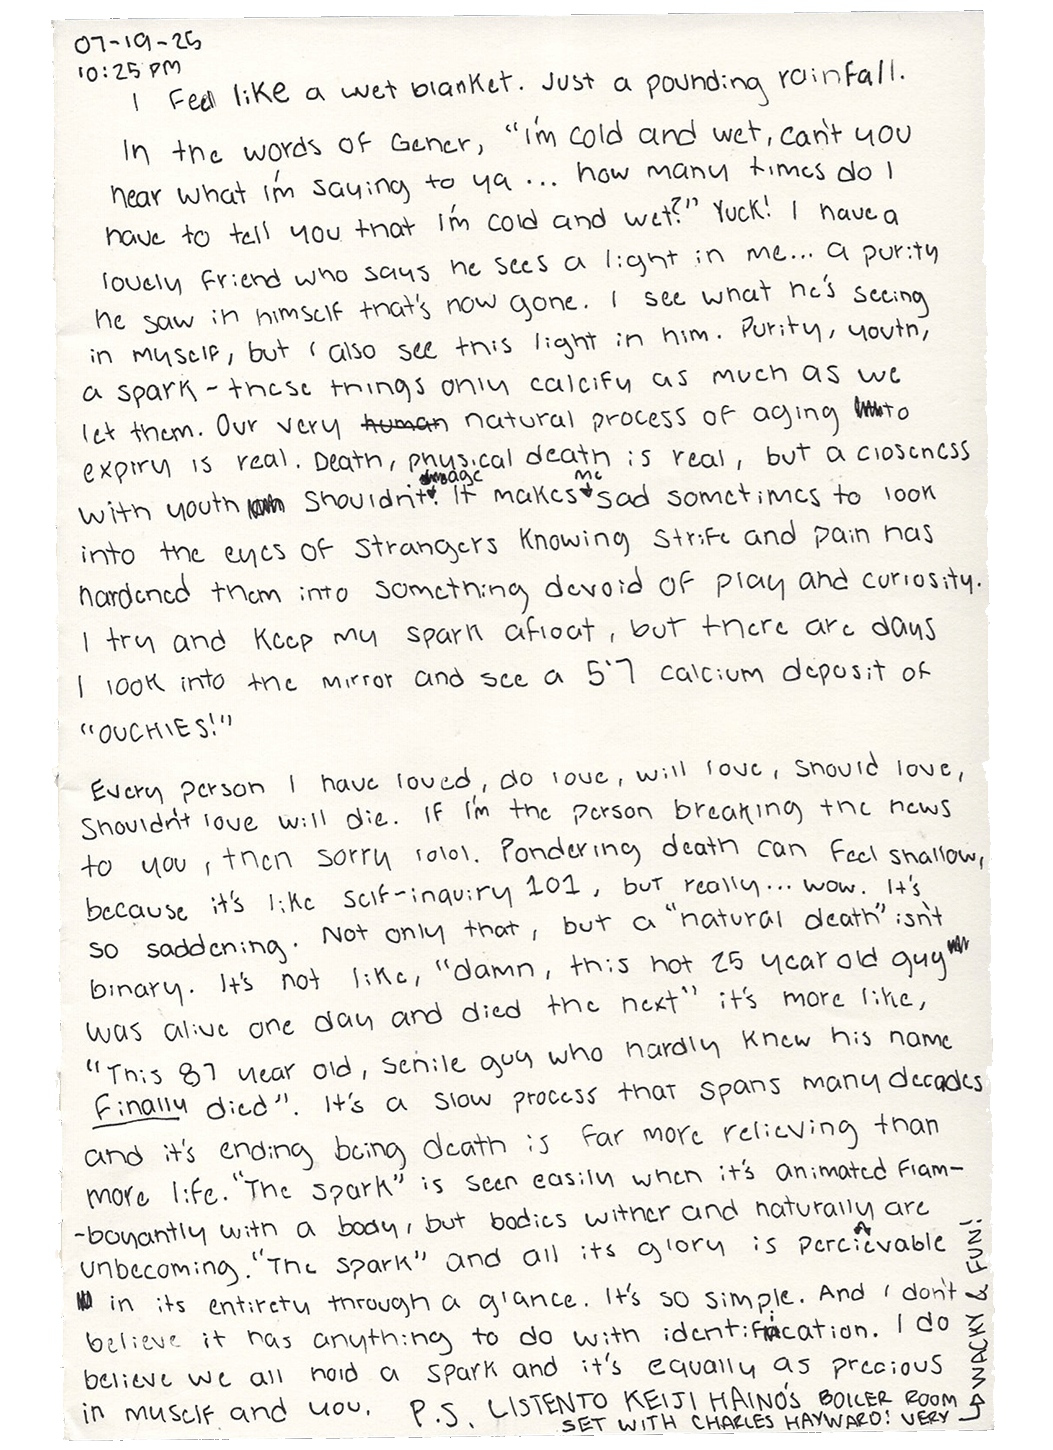 07-19-25
10:25 PM
I Feel like a wet blanket. Just a pounding rainfall.
In the words of Gener, "I'm cold and wet, can't you
hear what I'm saying to ya... how many times do I
have to tell you that I'm cold and wet?" Yuck! I have a
lovely friend who says he sees a light in me... a purity
he saw in himself that's now gone. I see what he's seeing
in myself, but I also see this light in him. Purity, youth,
a spark - these things only calcify as much as we
let them. Our very human natural process of aging to
expiry is real. Death, physical death is real, but a closeness
with youth shouldn't age. It makes me sad sometimes to look
into the eyes of strangers knowing strife and pain has
hardened them into something devoid of play and curiosity.
I try and keep my spark afloat, but there are days
I look into the mirror and see a 5'7 calcium deposit of
"OUCHIES!"
Every person I have loved, do love, will love, should love,
shouldn't love will die. If I'm the person breaking the news
to you, then sorry lolol. Pondering death can feel shallow,
because it's like self-inquiry 101, but really... wow. It's
so saddening. Not only that, but a "natural death" isn't
binary. It's not like, "damn, this hot 25 year old guy
was alive one day and died the next" it's more like,
"This 87 year old, senile guy who hardly knew his name
Finally died". It's a slow process that spans many decades
and it's ending being death is far more relieving than
more life. "The spark" is seen easily when it's animated flam-
-boyantly with a body, but bodies wither and naturally are
unbecoming. "The spark" and all its glory is percievable
in its entirety through a glance. It's so simple. And I don't
believe it has anything to do with identification. I do
believe we all hold a spark and it's equally as precious
in myself and you. P.S. LISTEN TO KEIJI HAINO'S BOILER ROOM
SET WITH CHARLES HAYWARD! VERY
WACKY & FUN!